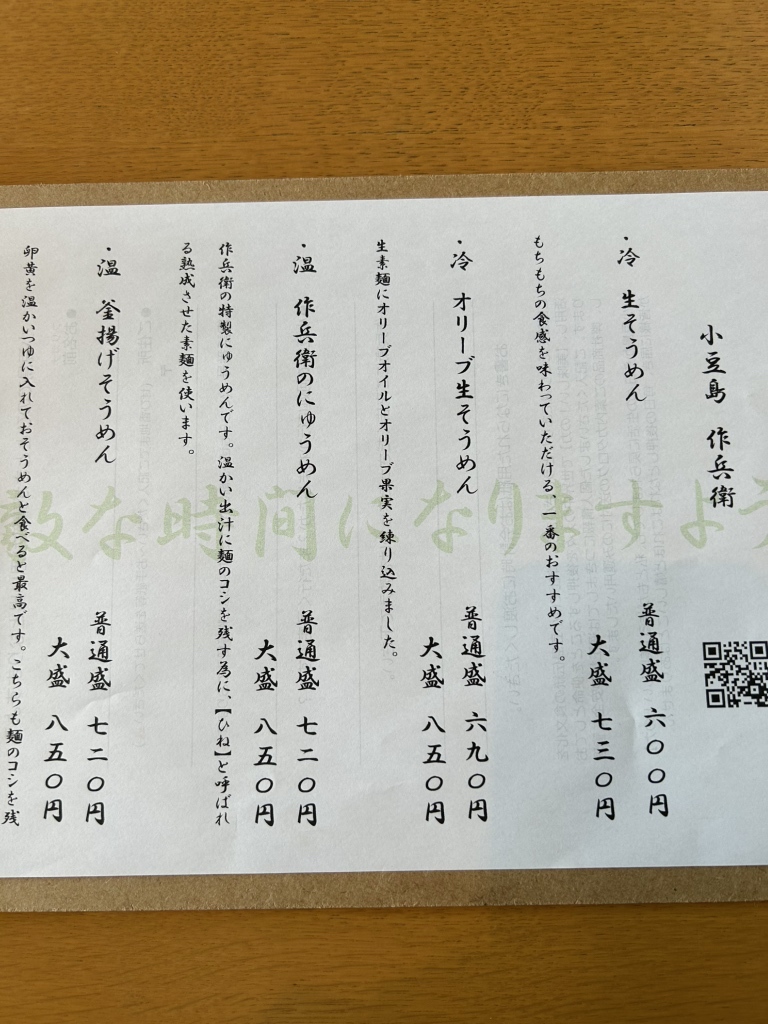 小豆島 作兵衛
・冷 生そうめん
普通盛 六〇〇円
大盛 七三〇円
もちもちの食感を味わっていただける、一番のおすすめです。
・冷 オリーブ生そうめん
普通盛 六九〇円
大盛 八五〇円
生素麺にオリーブオイルとオリーブ果実を練り込みました。
・温 作兵衛のにゅうめん
普通盛 七二〇円
大盛 八五〇円
作兵衛の特製にゅうめんです。温かい出汁に麺のコシを残す為に、【ひね】と呼ばれ
る熟成させた素麺を使います。
・温 釜揚げそうめん
普通盛 七二〇円
大盛 八五〇円
卵黄を温かいつゆに入れておそうめんと食べると最高です。こちらも麺のコシを残
敵な時間になりますよう